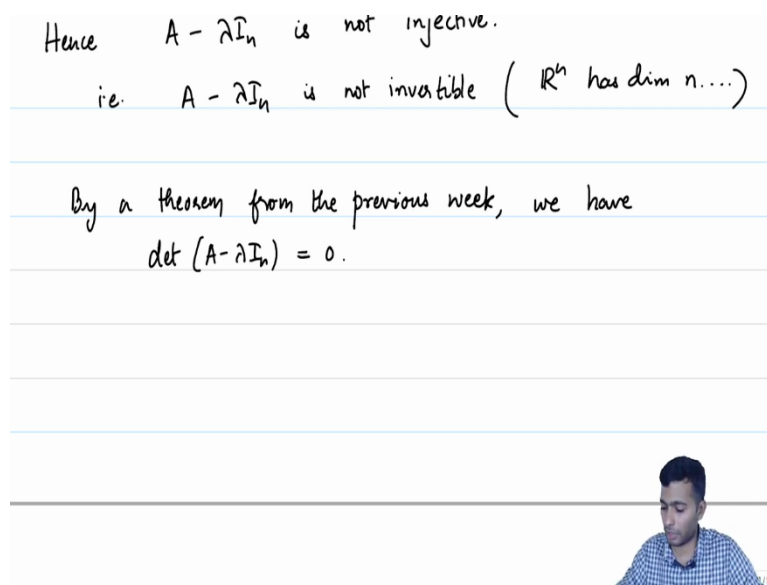 Hence A - λIn is not injective.
i.e. A - λIn is not invertible ( ℝⁿ has dim n....)
By a theorem from the previous week, we have
det (A - λIn) = 0.